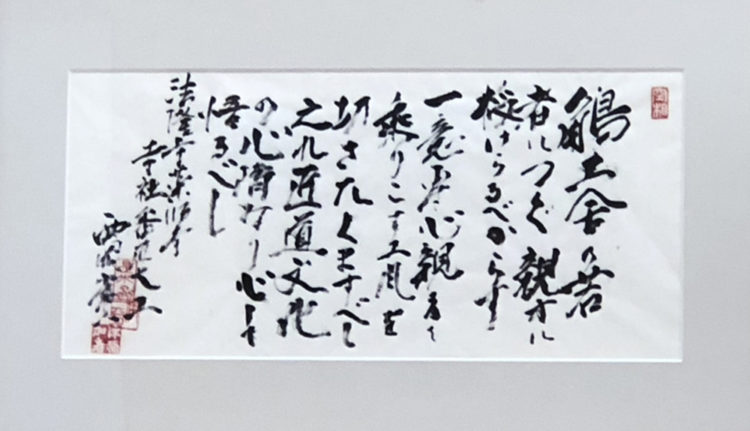 鵤工舎の若
者につぐ 親方に
授けらるべからす
一意専心親方を
乗りこす工風を
切さたくますべし
之れ匠道文化
の心髄なり 心して
悟るべし
法隆寺薬師寺
寺社番匠大工
西岡常一